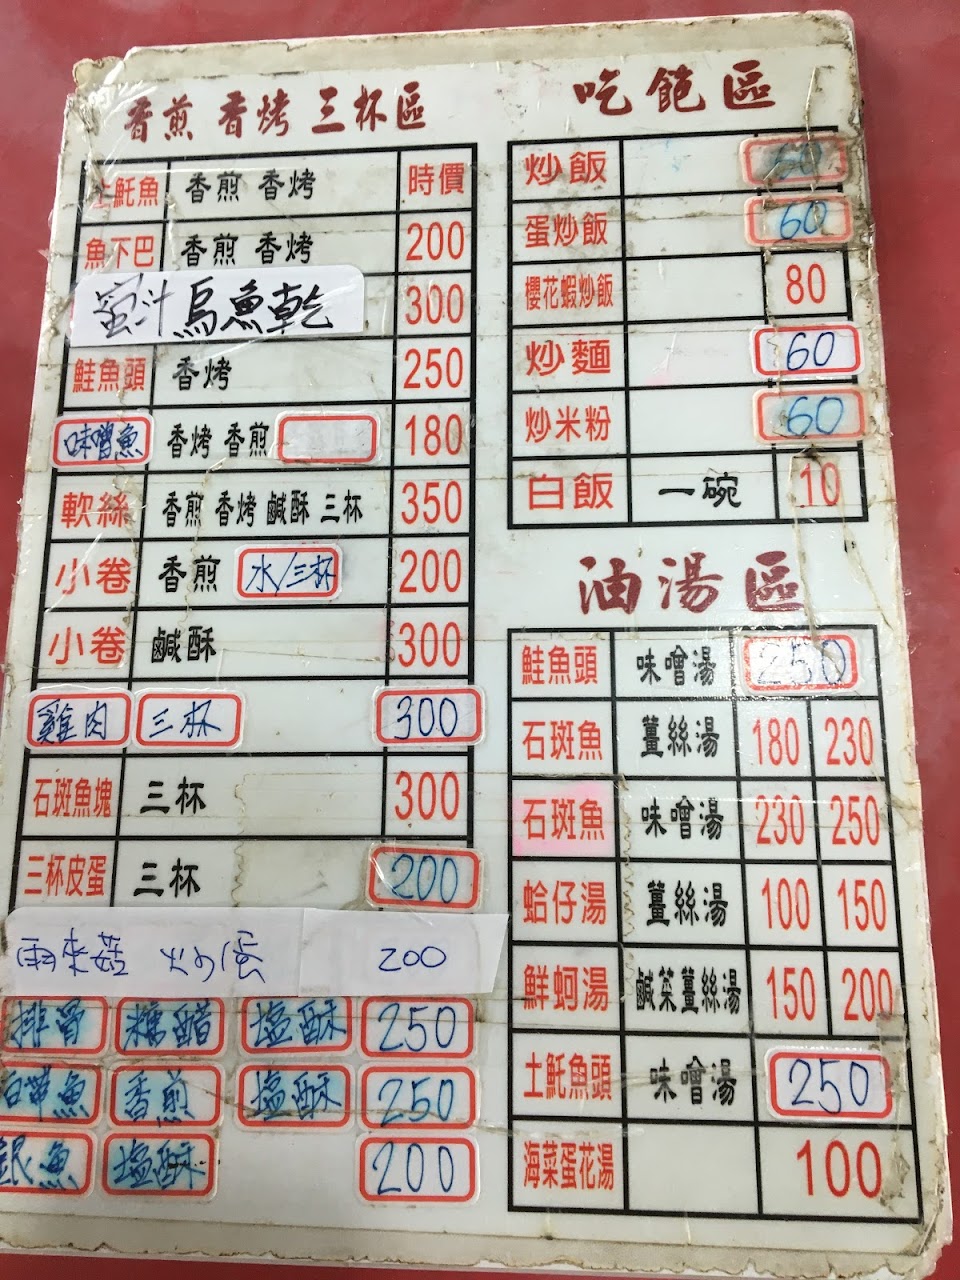 香煎 香烤 三杯區
土魠魚 香煎 香烤 時價
魚下巴 香煎 香烤 200
蜜汁烏魚乾 300
鮭魚頭 香烤 250
味噌魚 香烤 香煎 180
軟絲 香煎 香烤 鹹酥 三杯 350
小卷 香煎 水/三杯 200
小卷 鹹酥 300
雞肉 三杯 300
石斑魚塊 三杯 300
三杯皮蛋 三杯 200
雨來菇 炒蛋 200
排骨 糖醋 塩酥 250
白帶魚 香煎 塩酥 250
銀魚 塩酥 200
吃飽區
炒飯 60
蛋炒飯 60
櫻花蝦炒飯 80
炒麵 60
炒米粉 60
白飯 一碗 10
油湯區
鮭魚頭 味噌湯 250
石斑魚 薑絲湯 180 230
石斑魚 味噌湯 230 250
蛤仔湯 薑絲湯 100 150
鮮蚵湯 鹹菜薑絲湯 150 200
土魠魚頭 味噌湯 250
海菜蛋花湯 100